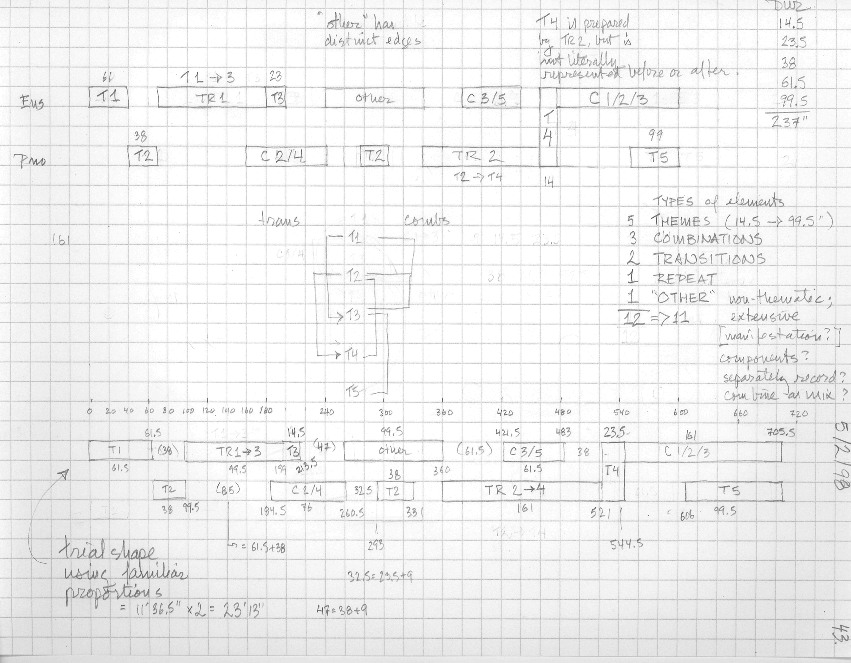 "other" has
distinct edges
T4 is prepared
by TR2, but is
not literally
represented before or after.
DUR
14.5
23.5
38
61.5
99.5
237"
61 T1→3 23
Ens T1 TR1 T3 other C3/5 C1/2/3
T
4
38 99
Pno T2 C2/4 T2 TR2 T5
T2→T4 14
trans combs
T1
T2
T3
T4
T5
TYPES of elements
5 THEMES (14.5 → 99.5")
3 COMBINATIONS
2 TRANSITIONS
1 REPEAT
1 "OTHER" non-thematic;
12 => 11 extensive
[manifestation?]
components?
separately record?
combine as mix?
0 20 40 60 80 100 120 140 160 180 240 300 360 420 480 540 600 660 720
61.5 14.5 99.5 421.5 483 23.5 161 705.5
T1 (38) TR1→3 T3 (47) other (61.5) C3/5 38 C1/2/3
61.5 99.5 199 213.5 360 61.5 T4
38
T2 (85) C2/4 32.5 T2 TR2→4 T5
38 99.5 184.5 76 260.5 381 161 521 606 99.5
= 61.5+38 293 544.5
trial shape
using familiar
proportions
= 11'36.5" x2 = 23'13"
32.5=23.5+9
47=38+9
5/2/98
43.